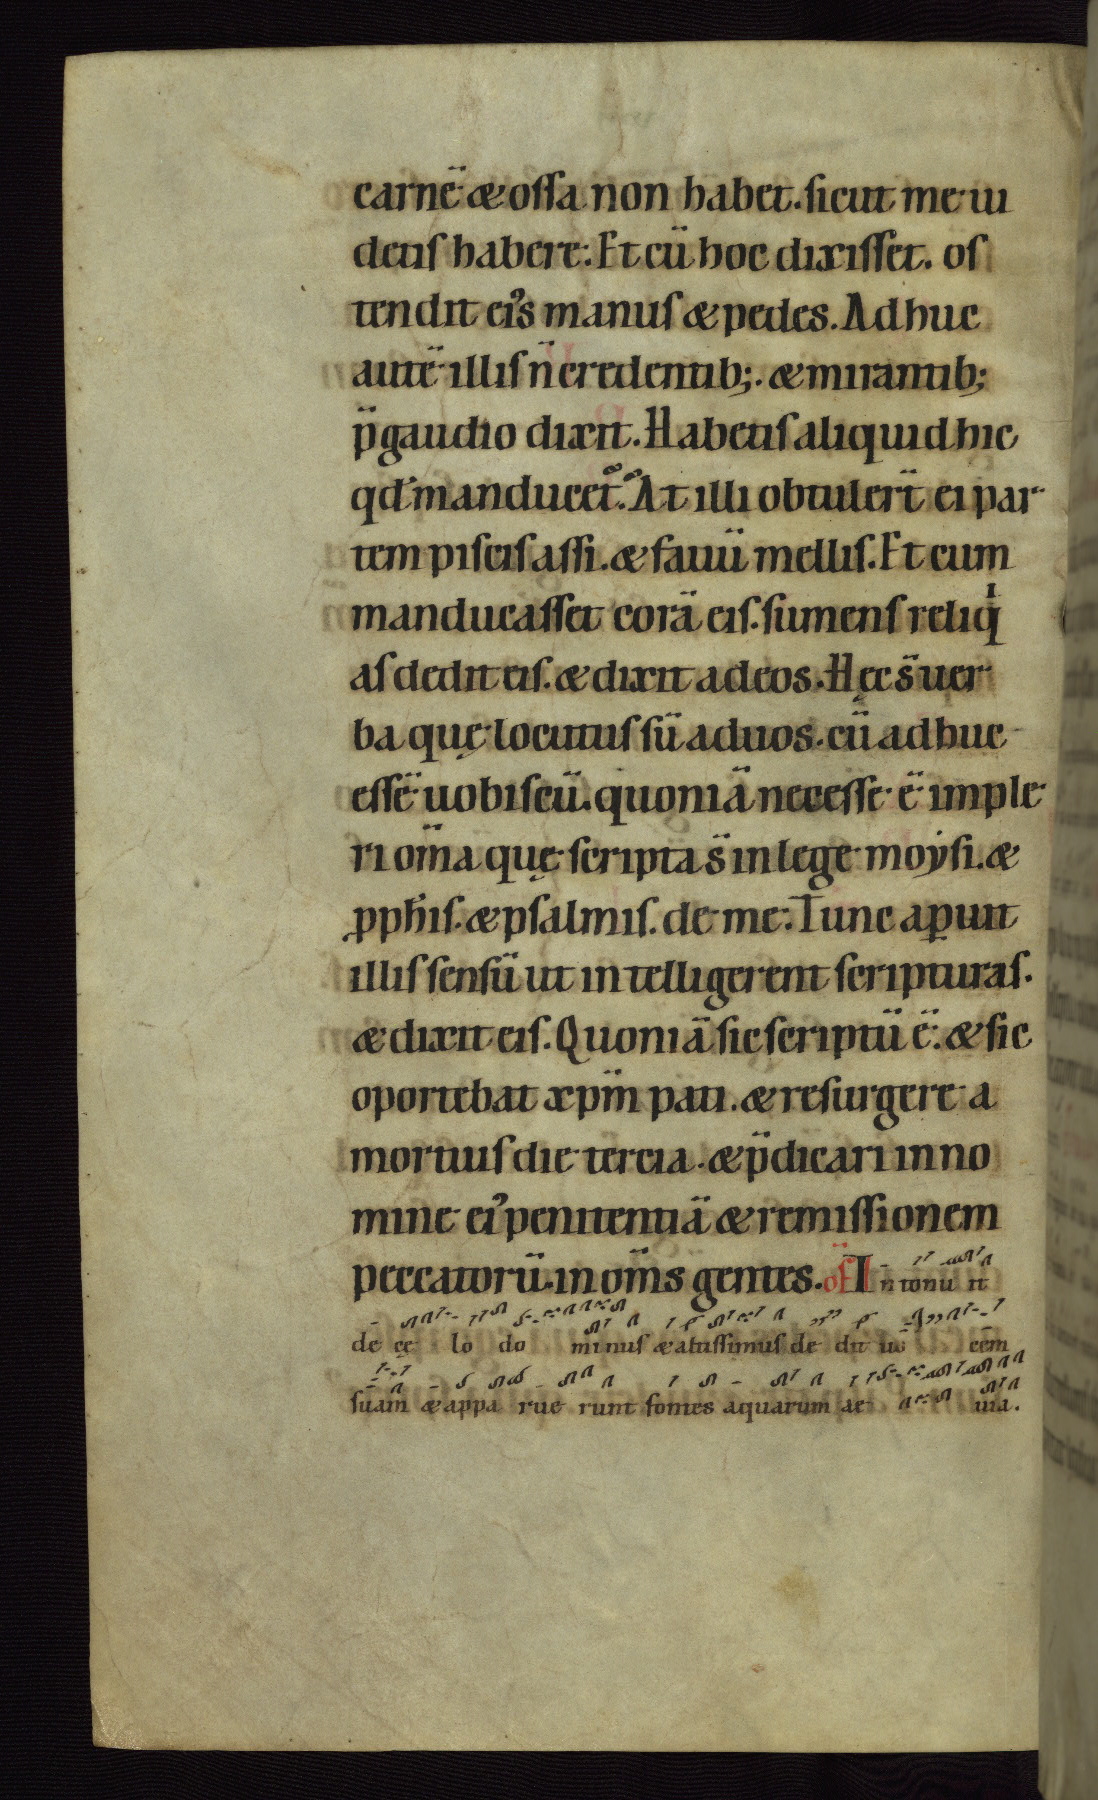 carnē & ossa non habet. sicut me ui
detis habere: Et cū hoc dixisset. os
tendit eis manus & pedes. Adhuc
autē illis n̄ credentib;. & mirantib;
p̄ gaudio dixit. Habetis aliquid hic
qd̄ manducet̄. At illi obtuler̄t ei par
tem piscis assi. & fauū mellis. Et cum
manducasset corā eis. sumens reliqi
as dedit eis. & dixit ad eos. Hęc s̄ uer
ba quę locutus sū ad uos. cū adhuc
essē uobiscū. quoniā necesse ē imple
ri om̄a quę scripta s̄ in lege moẏsi. &
ꝓph̄is. & psalmis. de me: Tunc aꝑuit
illis sensū ut intelligerent scripturas.
& dixit eis. Quoniā sic scriptū ē: & sic
oportebat xpm̄ pati. & resurgere a
mortuis die tercia. & p̄dicari in no
mine ei' penitentiā & remissionem
peccatorū. in om̄s gentes. of̄ Intonu it
de cę lo do minus & altissimus de dit uo cem
suam & appa rue runt fontes aquarum ae uia.